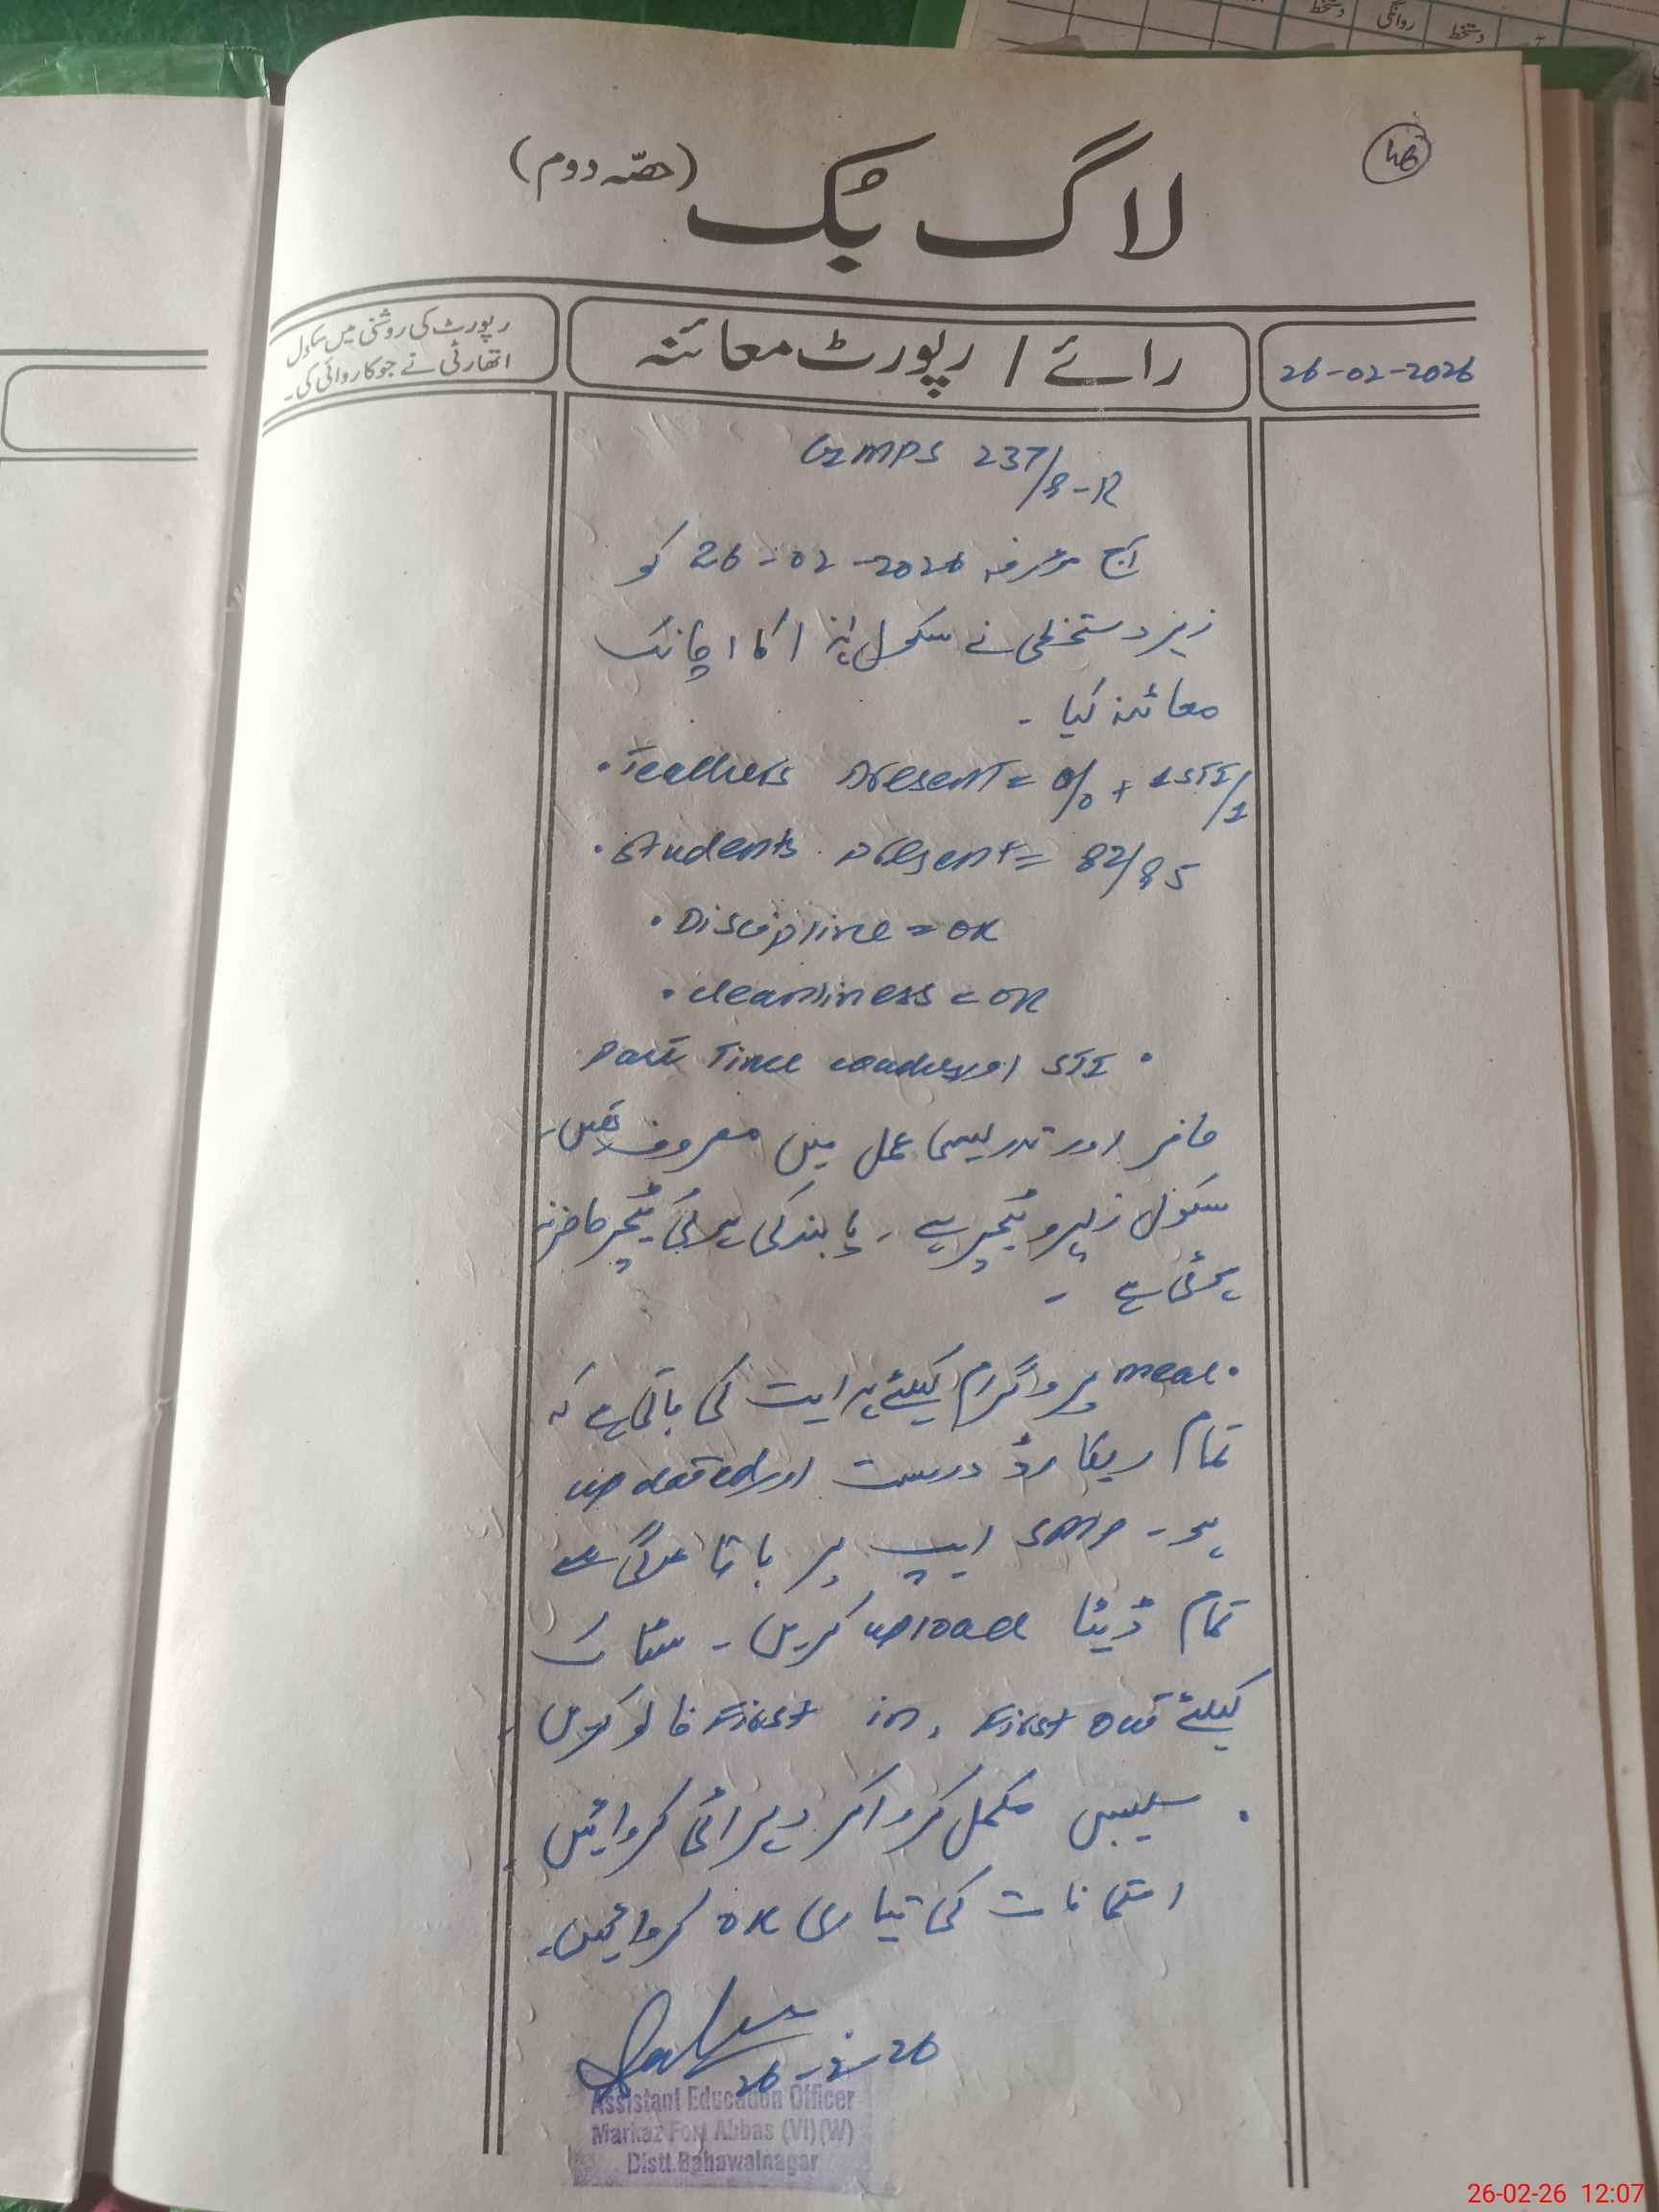 دستخط
روانگی
دستخط
46
لاگ بُک (حصّہ دوم)
26-02-2026
رائے / رپورٹ معائنہ
رپورٹ کی روشنی میں سکول
اتھارٹی نے جو کاروائی کی۔
GMPS 237/8-R
آج مورخہ 26-02-2026 کو
زیر دستخطی نے سکول ہٰذا کا اچانک
معائنہ کیا ۔
• Teachers present = 0/0 + 1 STI/1
• Students present = 82/85
• Discipline = OK
• Cleanliness = OK
• STI اور Part Time
حاضر اور تدریسی عمل میں مصروف تھیں۔
سکول زیرو ٹیچر ہے ۔ ٹیچر حاضر
ہوئی ہے ۔
• meal پروگرام کیلئے ہدایت کی جاتی ہے کہ
تمام ریکارڈ درست اور updated
ہو ۔ SMP ایپ پر باقاعدگی سے
تمام ڈیٹا upload کریں ۔ سٹاک
کیلئے First in, First out فالو کریں ۔
• سلیبس مکمل کروا کر دہرائی کروائیں ۔
امتحانات کی تیاری OK کروائیں۔
26-2-26
Assistant Education Officer
Markaz Fort Abbas (VI)(W)
Distt. Bahawalnagar
26-02-26 12:07